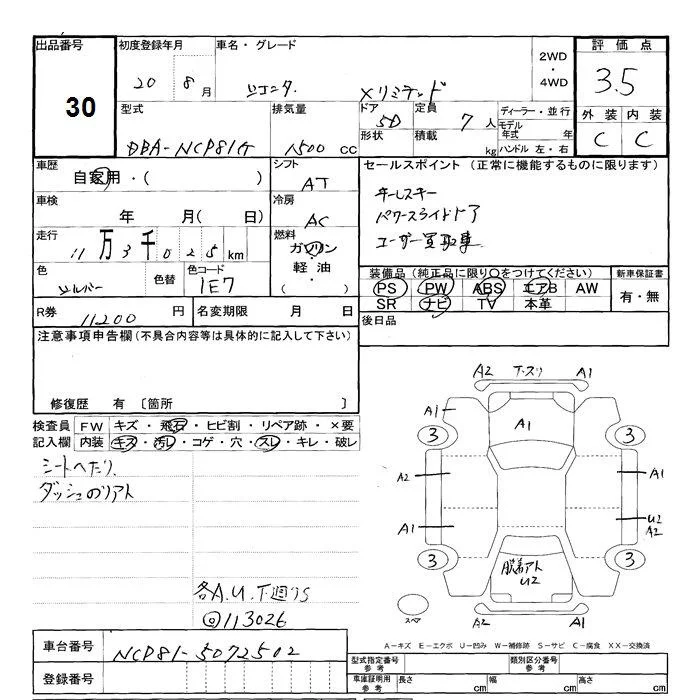 出品番号
30
初度登録年月
20 8月
車名・グレード
シエンタ Xリミテッド
2WD
・
4WD
評価点
3.5
外装 内装
C C
型式
DBA-NCP81G
排気量
1500 cc
ドア
5D
形状
定員
7人
積載
kg
ディーラー・並行
モデル
年式 年
ハンドル 左・右
車歴
自家用・( )
シフト
AT
車検
年 月( 日)
冷房
AC
走行
11万3千025km
燃料
ガソリン
・
軽油
( )
色
シルバー
色替
色コード
1E7
R券
11200円
名変期限 月 日
セールスポイント (正常に機能するものに限ります)
キーレスキー
パワースライドドア
ユーザー買取車
装備品(純正品に限り○をつけてください)
PS PW ABS エアB AW
SR ナビ TV 本革
新車保証書
有・無
後日品
注意事項申告欄(不具合内容等は具体的に記入して下さい)
修復歴 有 〔箇所 〕
検査員
記入欄
FW キズ・飛石・ヒビ割・リペア跡・×要
内装 キズ・汚レ・コゲ・穴・スレ・キレ・破レ
シートヘタリ、
ダッシュのリアト
各A.U.下廻りS
@113026
A2 下スリ A1
A1 A1
3 3
A2 A1
A1 U2
A2
3 3
脱着アト
U2
スペア
A2 A1
A－キズ E－エクボ U－凹み W－補修跡 S－サビ C－腐食 XX－交換済
車台番号
NCP81-5072502
登録番号
型式指定番号
参考
類別区分番号
参考
車庫証明用
参考
長さ cm 幅 cm 高さ cm